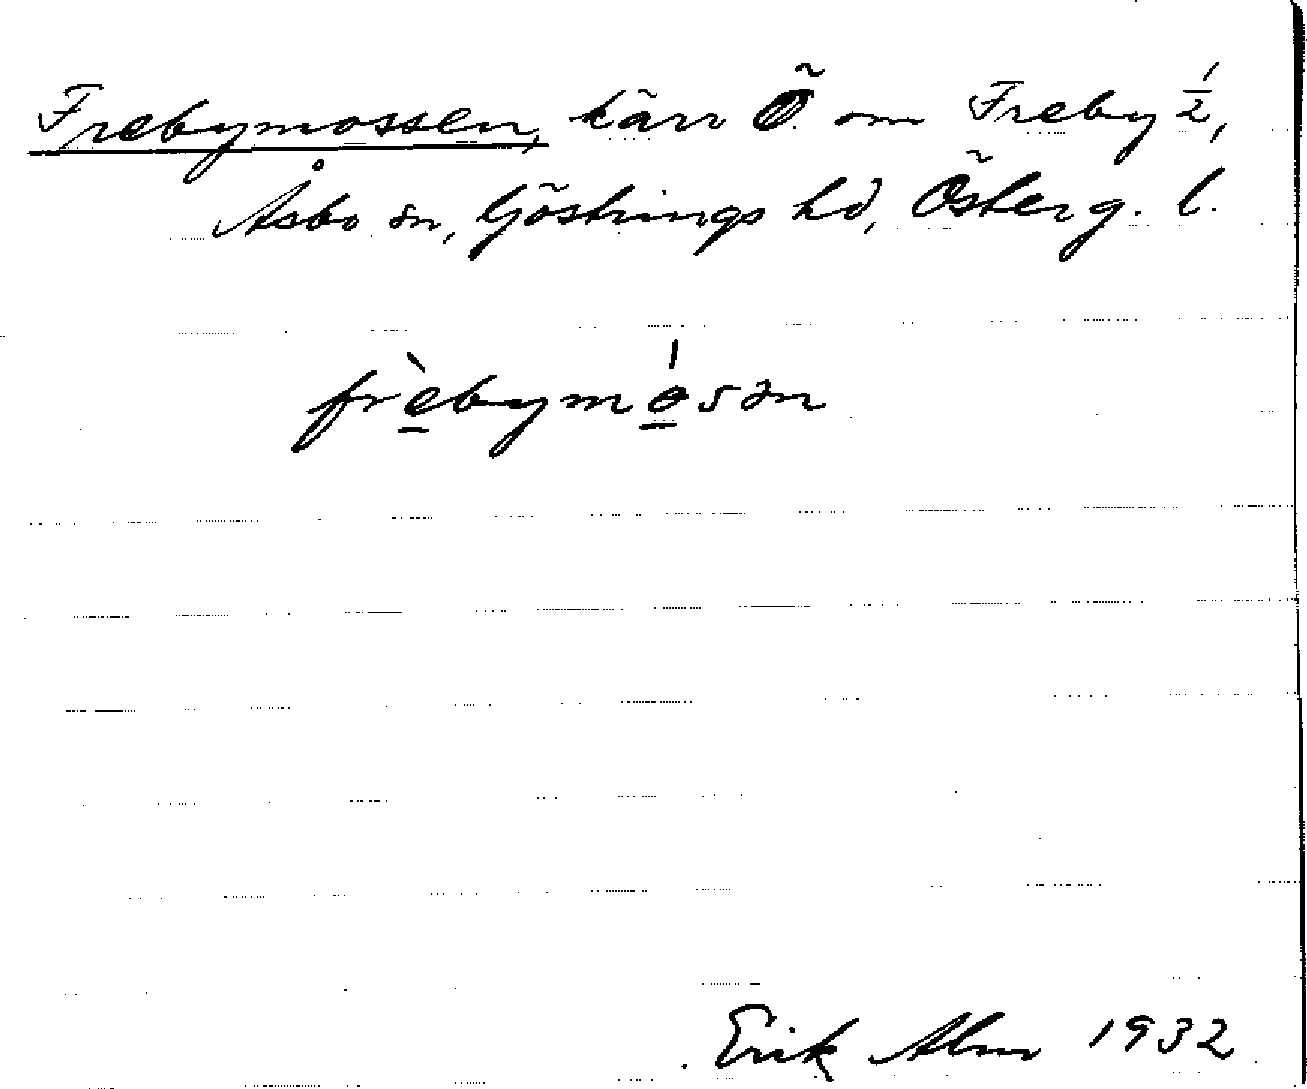 Frebymossen, kärr Ö. om Freby 1/2,
Åsbo sn, Göstrings hd, Österg. l.
frèbymósən
Erik Alm 1932